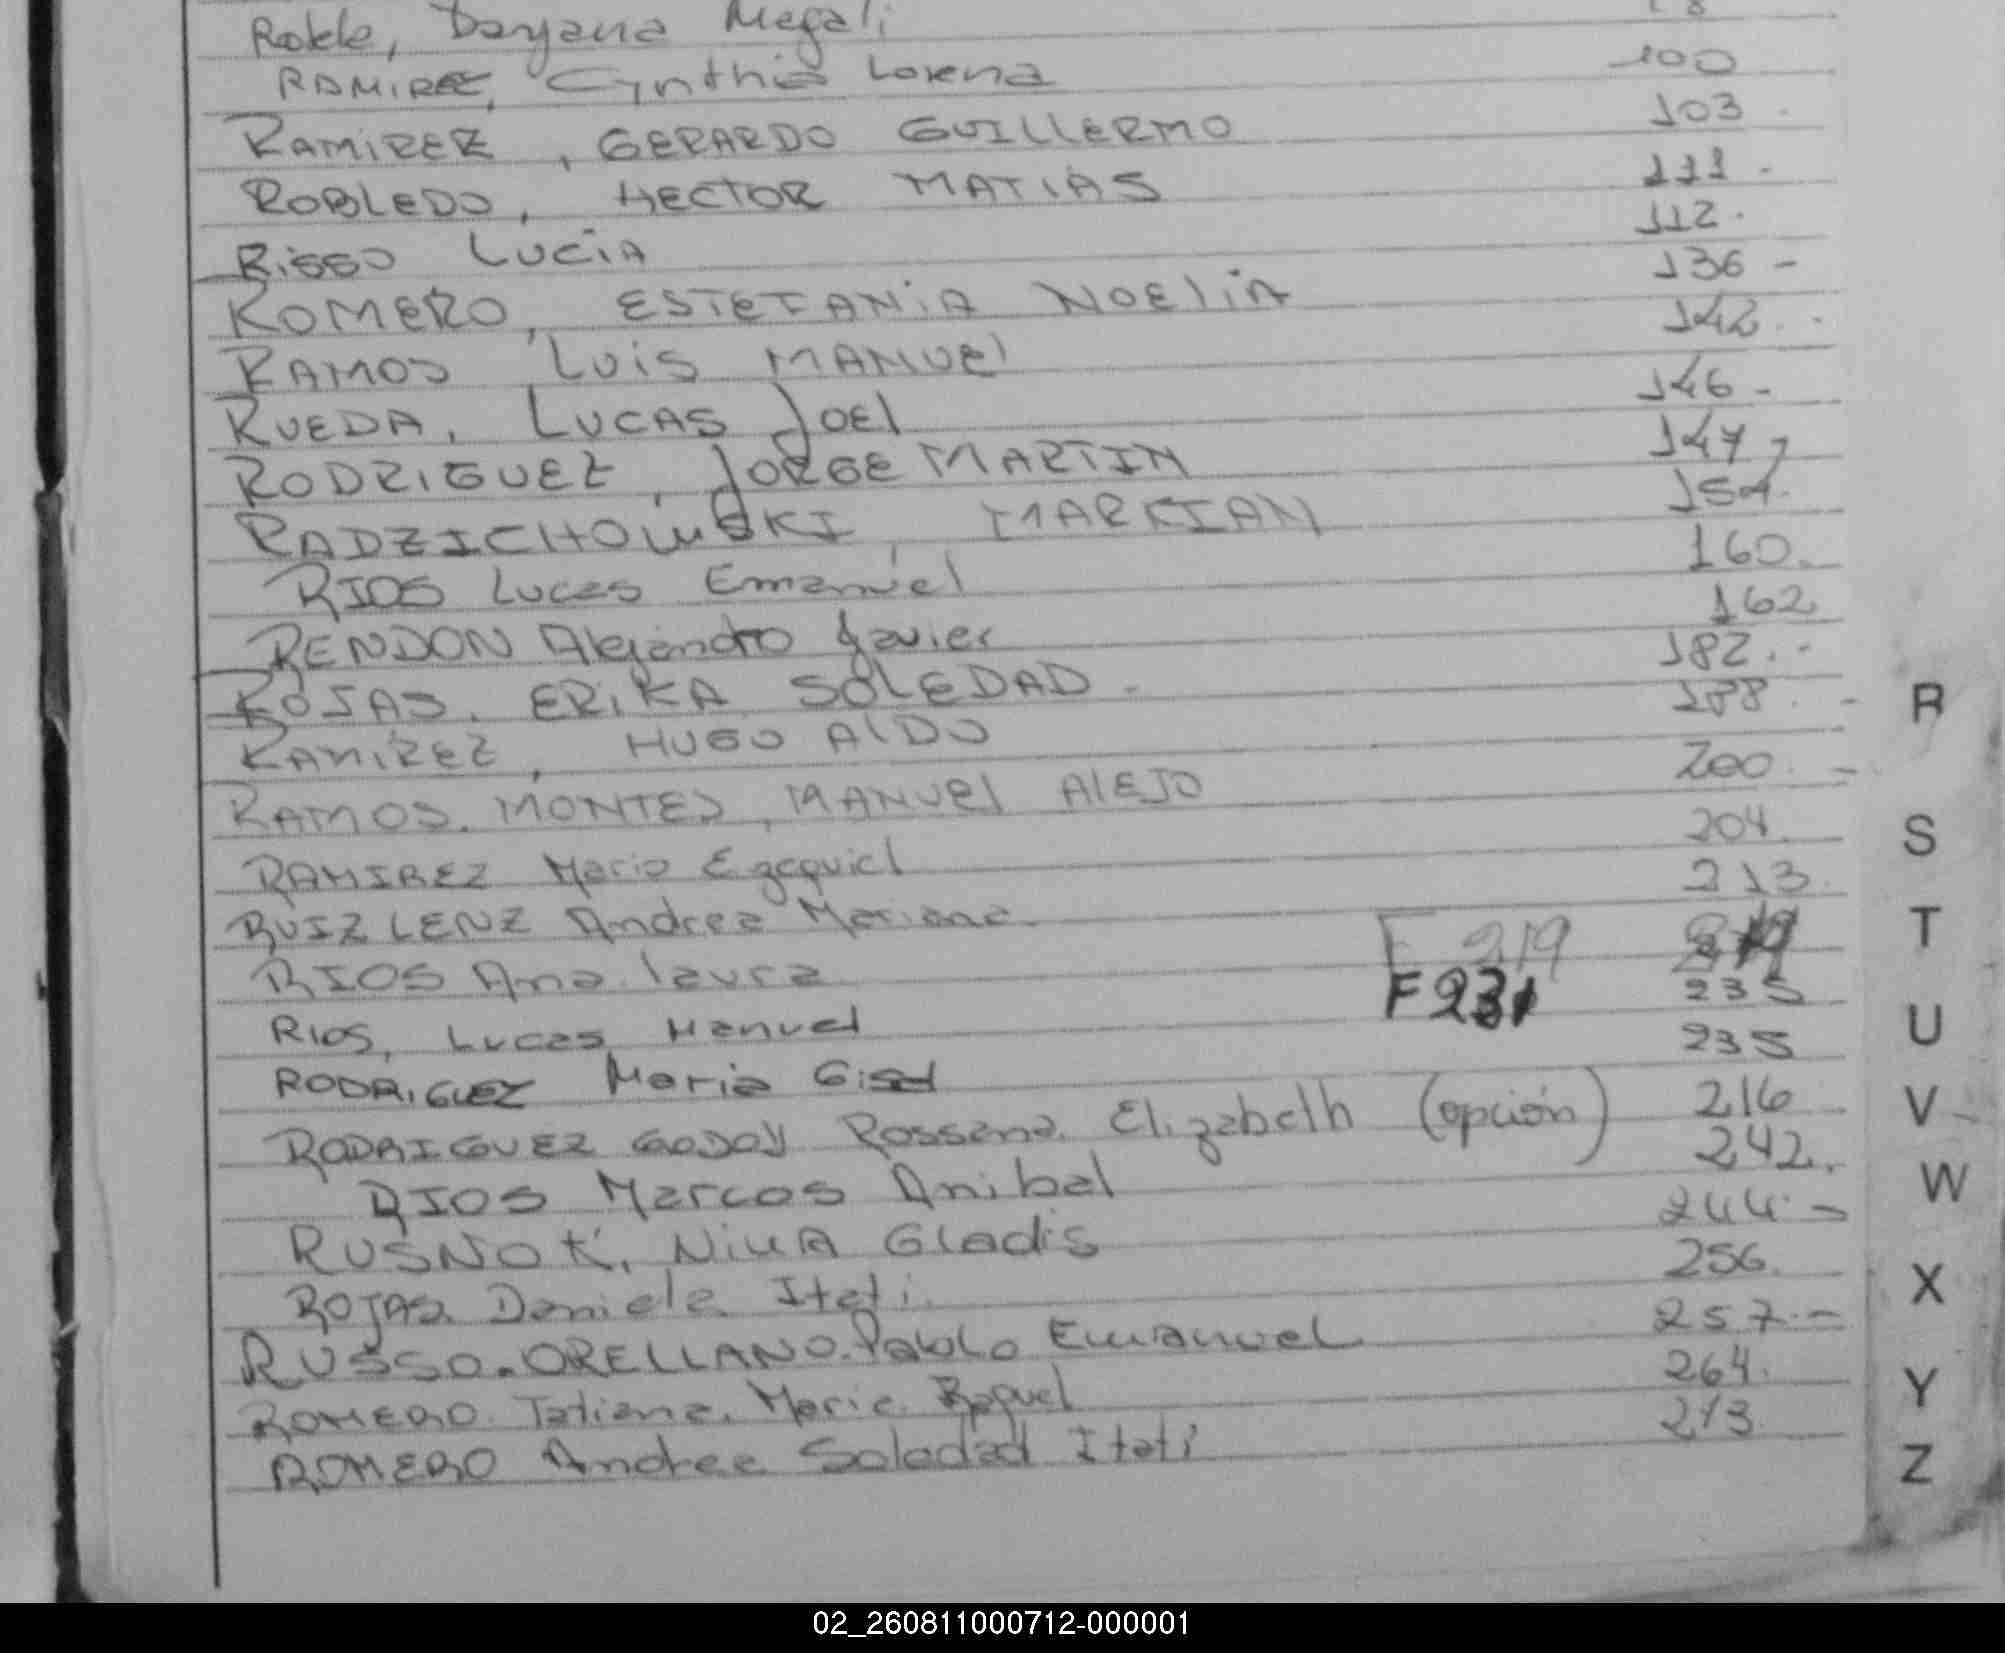 Roble, Dayana Magali 18
RAMIREZ, Cynthia Lorena 100
RAMIREZ, GERARDO GUILLERMO 103
ROBLEDO, HECTOR MATIAS 111
Risso LUCIA 112
ROMERO, ESTEFANIA NOELIA 136
RAMOS LUIS MANUEL 142
RUEDA, LUCAS JOEL 146
RODRIGUEZ, JORGE MARTIN 147
RADZICHOWSKI, MARKIAN 154
RIOS Lucas Emanuel 160
RENDON Alejandro Javier 162
ROJAS, ERIKA SOLEDAD 182
RAMIREZ, HUGO ALDO 188
RAMOS. MONTES, MANUEL ALEJO 200
RAMIREZ Mario Ezequiel 204
RUIZ LENZ Andrea Mariana 213
RIOS Ana laura F 219
RIOS, Lucas Manuel F 231 235
RODRIGUEZ Maria Gisel 235
RODRIGUEZ GODOY Rossana Elizabeth (opción) 216
RIOS Marcos Anibal 242
RUSNOK, NIUA Gladis 244
ROJAS Daniela Itati 256
RUSSO-ORELLANO. Pablo Emanuel 257
ROMERO Tatiana Maria Raquel 264
ROMERO Andrea Soledad Itati 273
R
S
T
U
V
W
X
Y
Z
02_260811000712-000001